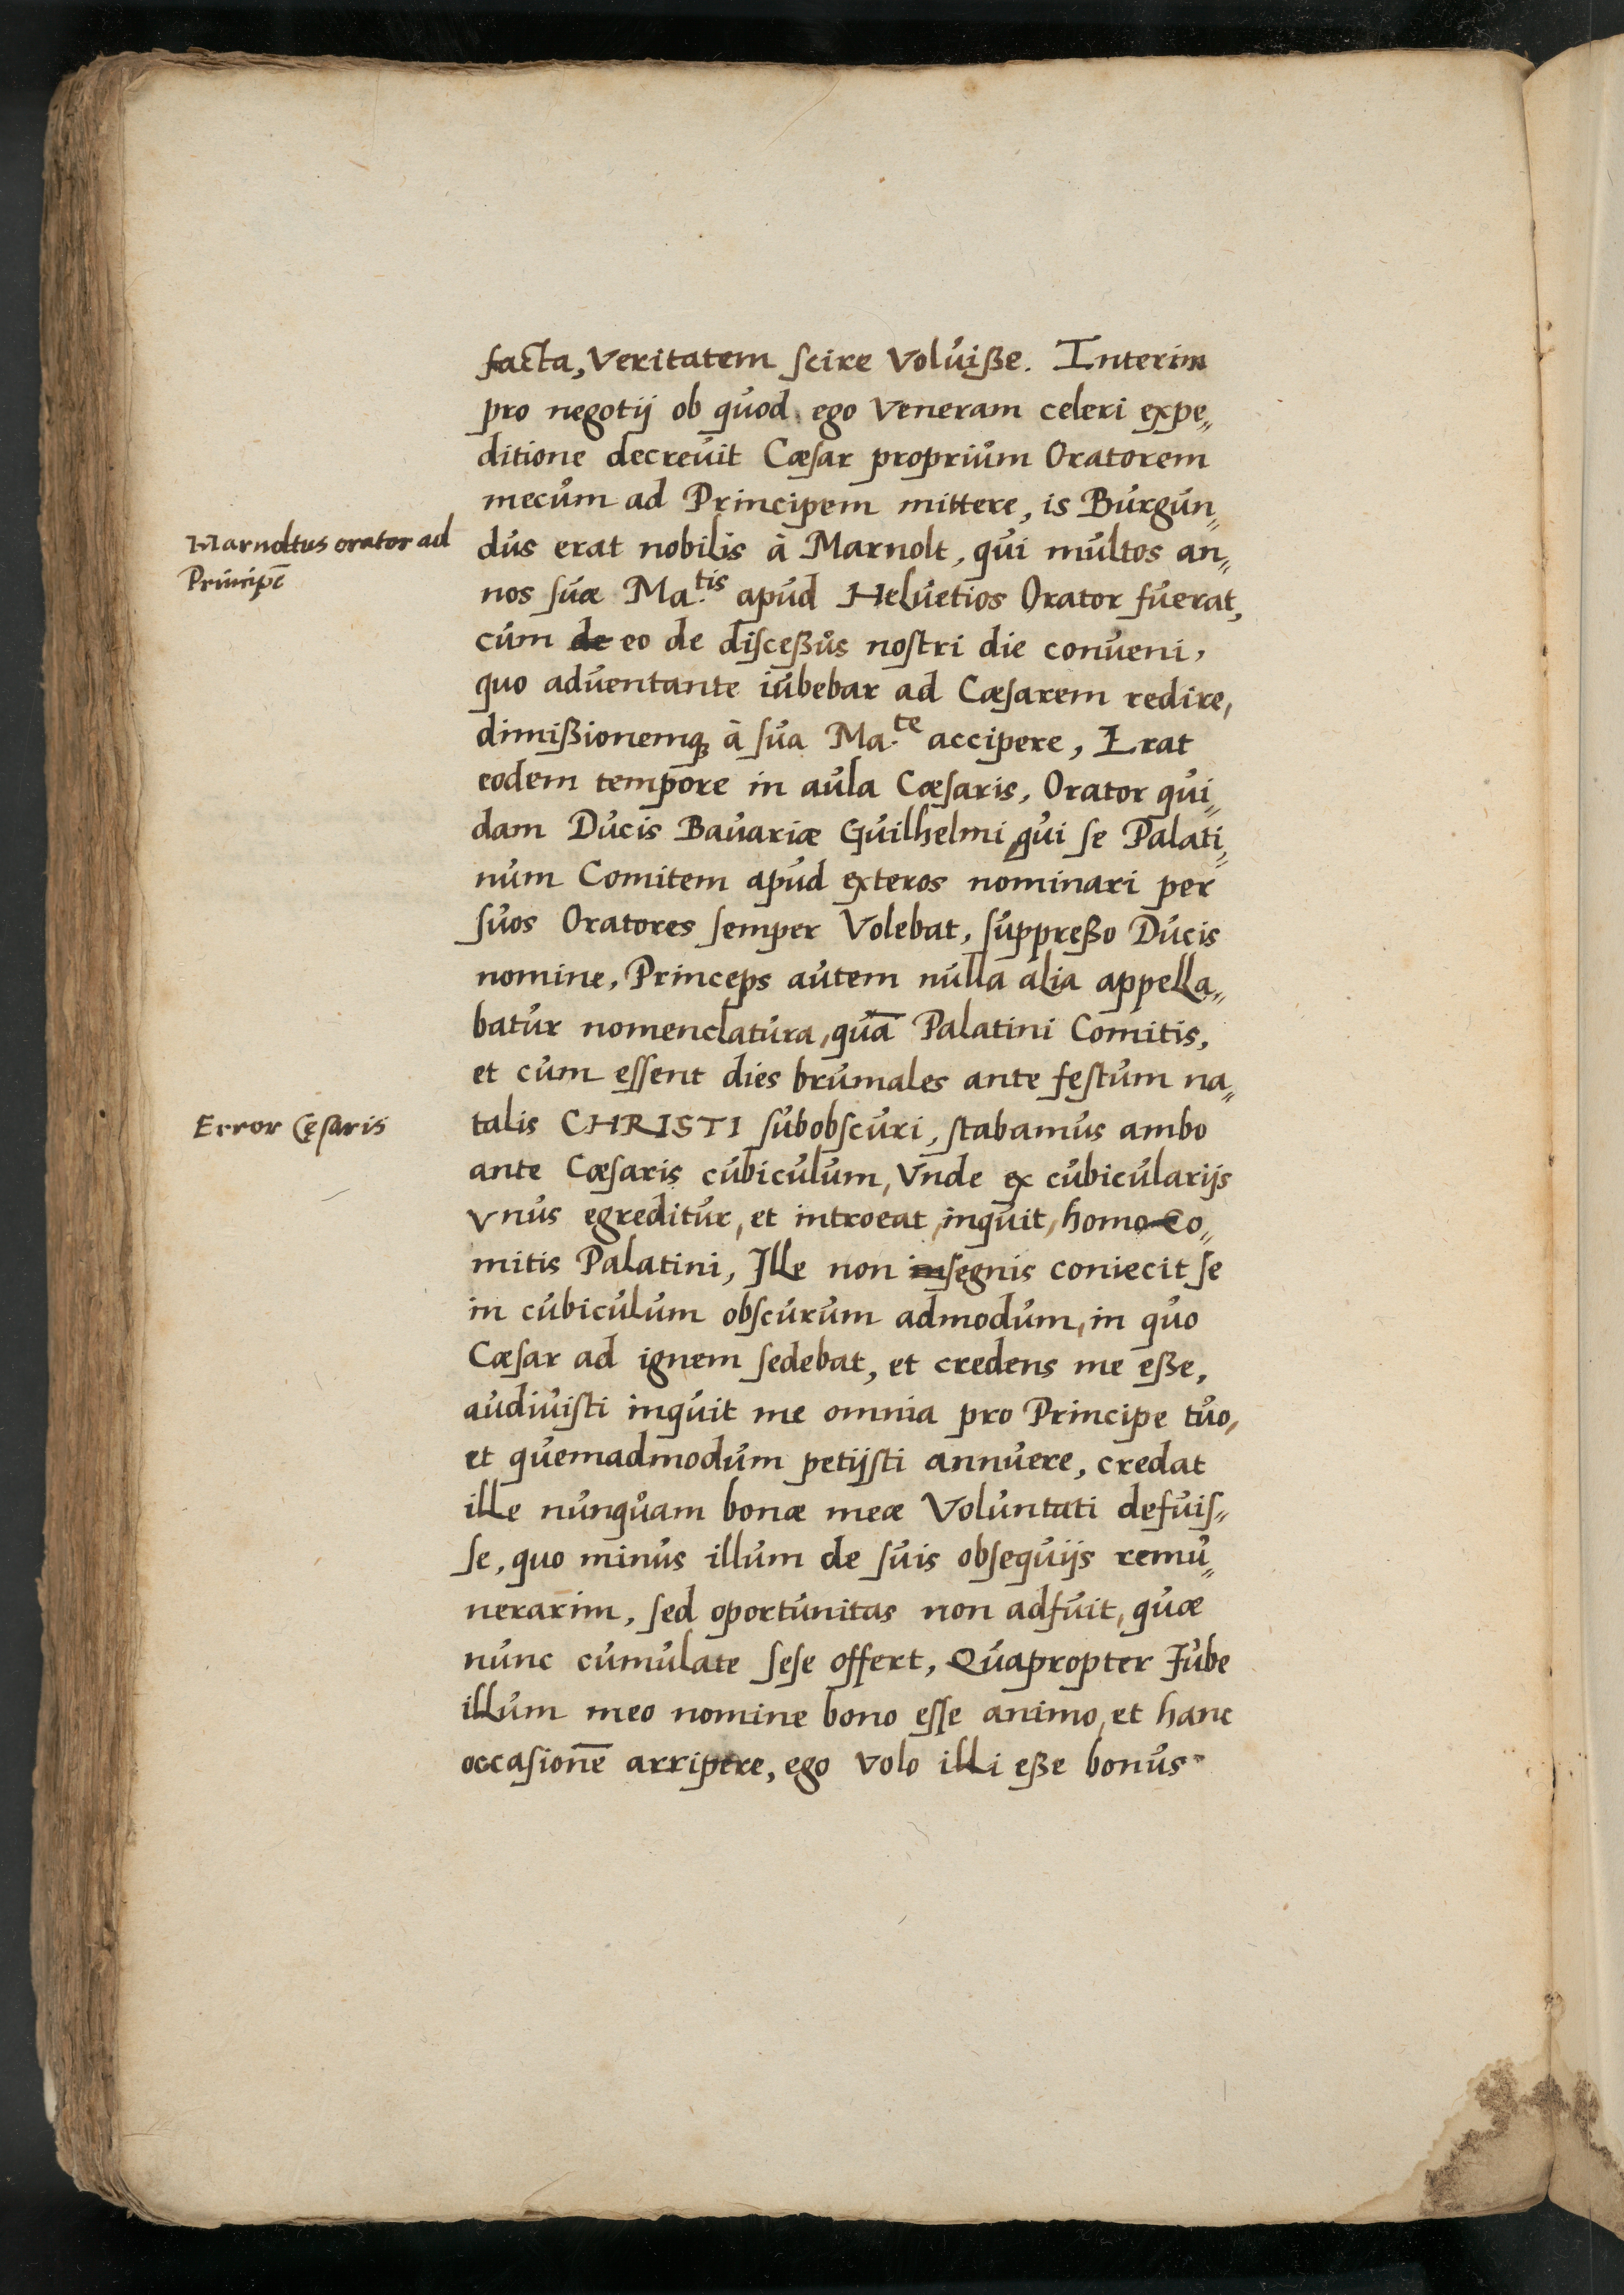 facta, Veritatem scire Voluiße. Interim
pro negotij ob quod ego Veneram celeri expe„
ditione decreuit Cæsar proprium Oratorem
mecum ad Principem mittere, is Burgun„
Marnoltus orator ad
Principē
dus erat nobilis à Marnolt, qui multos an„
nos suæ Ma.tis apud Heluetios Orator fuerat,
cum de eo de disceßus nostri die conueni,
quo aduentante iubebar ad Cæsarem redire,
dimißionemq; à sua Ma.te accipere, Erat
eodem tempore in aula Cæsaris, Orator qui„
dam Ducis Bauariæ Guilhelmi, qui se Palati„
num Comitem apud exteros nominari per
suos Oratores semper Volebat, suppreßo Ducis
nomine, Princeps autem nulla alia appella„
batur nomenclatura, quā Palatini Comitis,
et cum essent dies brumales ante festum na„
Error Cęsaris
talis CHRISTI subobscuri, stabamus ambo
ante Cæsaris cubiculum, Vnde ex cubicularijs
Vnus egreditur, et introeat, inquit, homo Co„
mitis Palatini, Ille non insegnis coniecit se
in cubiculum obscurum admodum, in quo
Cæsar ad ignem sedebat, et credens me eße,
audiuisti inquit me omnia pro Principe tuo,
et quemadmodum petijsti annuere, credat
ille nunquam bonæ meæ Voluntati defuis„
se, quo minus illum de suis obsequijs remu„
nerarim, sed oportunitas non adfuit, quæ
nunc cumulate sese offert, Quapropter Iube
illum meo nomine bono esse animo, et hanc
occasionē arripere, ego volo illi eße bonus